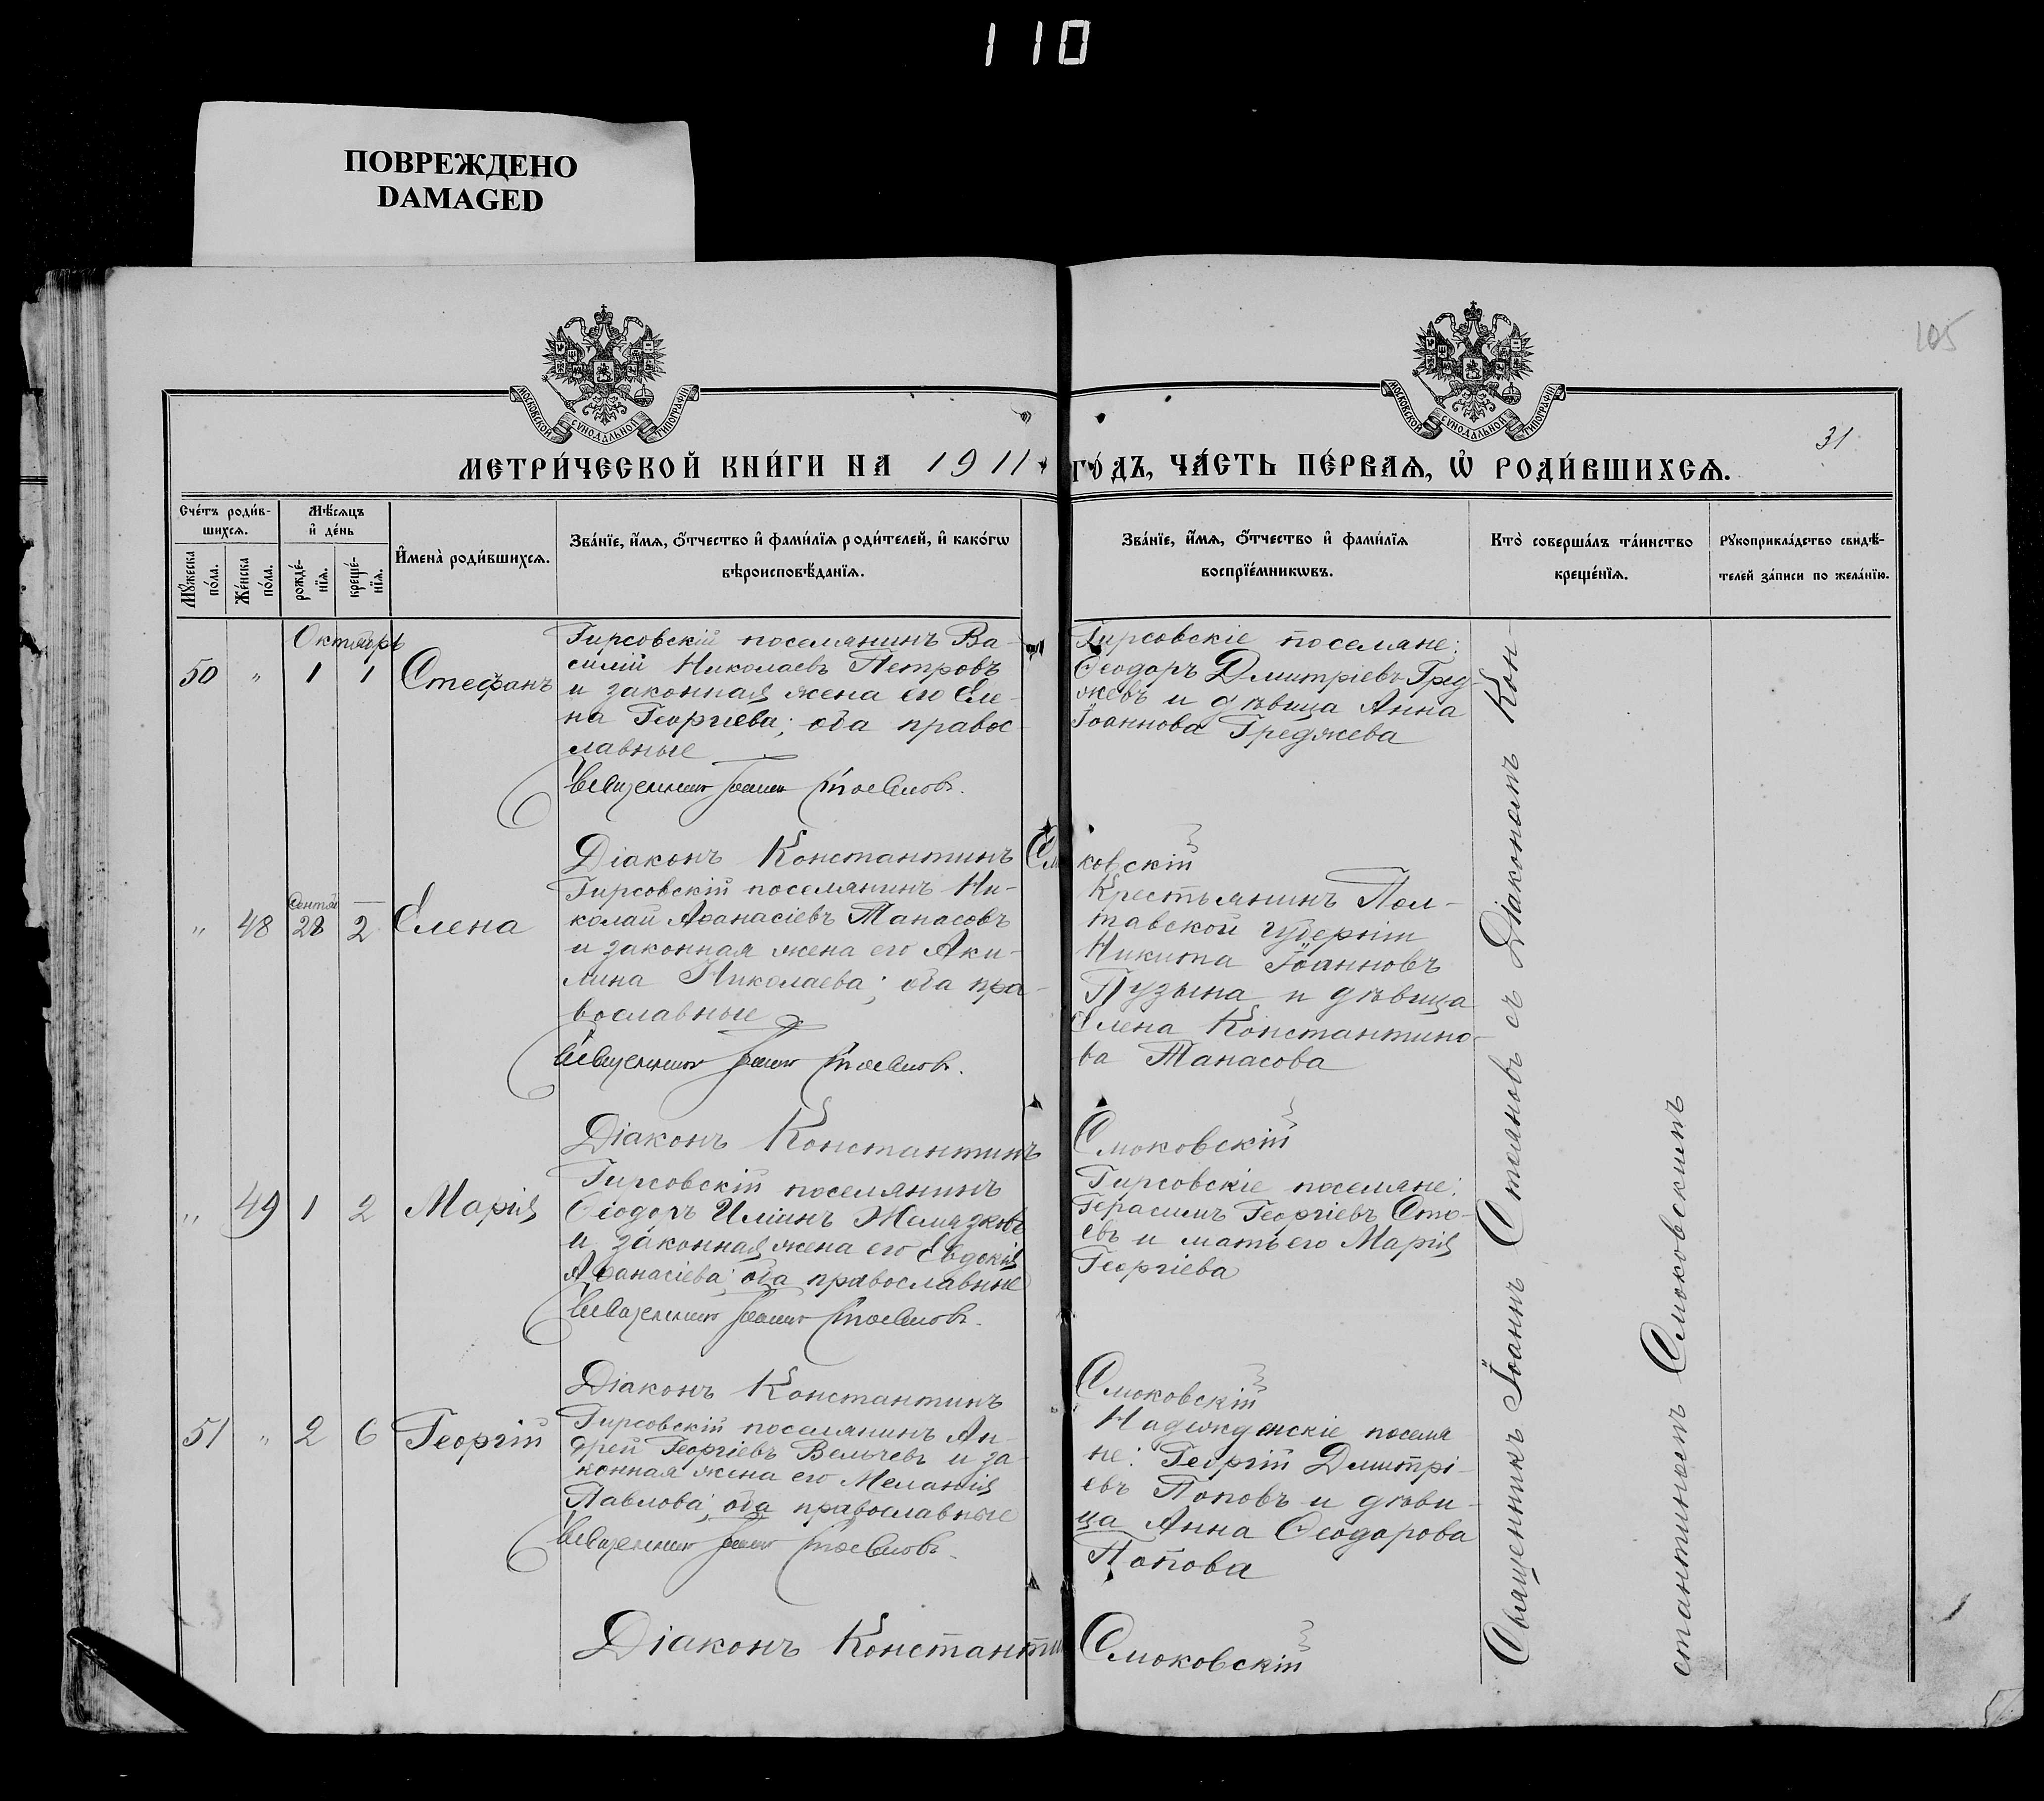 110
ПОВРЕЖДЕНО
DAMAGED
105
МОСКОВСКОЙ СѴНОДАЛЬНОЙ ТИПОГРАФІИ
МОСКОВСКОЙ СѴНОДАЛЬНОЙ ТИПОГРАФІИ
31
МЕТРИ́ЧЕСКОЙ КНИ́ГИ НА 1911 ГО́ДЪ, ЧА́СТЬ ПЕ́РВАѦ, Ѡ҆ РОДИ́ВШИХСѦ.
Сче́тъ роди́в-
шихсѧ.
Мꙋ́жеска
по́ла.
Же́нска
по́ла.
Мѣ́сѧцъ
и҆ де́нь
рожде́-
нїѧ.
креще́-
нїѧ.
И҆мена̀ роди́вшихсѧ.
Зва́нїе, и҆́мѧ, ѻ҆́тчество и҆ фами́лїѧ роди́телей, и҆ како́гѡ
вѣроисповѣ́данїѧ.
Зва́нїе, и҆́мѧ, ѻ҆́тчество и҆ фами́лїѧ
воспрїе́мникѡвъ.
Кто̀ соверша́лъ та́инство
креще́нїѧ.
Рꙋкоприкла́дство свидѣ́-
телей за́писи по жела́нїю.
Октябрь
50 " 1 1 Стефанъ
Гирсовскій поселянинъ Ва-
силій Николаевъ Петровъ
и законная жена его Еле-
на Георгіева; оба правос-
лавные
Священникъ Іоаннъ Стояновъ.
Діаконъ Константинъ Смоковскій
Гирсовскіе поселяне:
Ѳеодоръ Димитріевъ Гред-
жевъ и дѣвица Анна
Іоаннова Греджева
Сентяб
" 48 28 2 Елена
Гирсовскій поселянинъ Ни-
колай Аѳанасіевъ Танасовъ
и законная жена его Аки-
лина Николаева; оба пра-
вославные
Священникъ Іоаннъ Стояновъ.
Діаконъ Константинъ Смоковскій
Крестьянинъ Пол-
тавской губерніи
Никита Іоанновъ
Пузына и дѣвица
Елена Константино-
ва Танасова
" 49 1 2 Марія
Гирсовскій поселянинъ
Ѳеодоръ Иліинъ Желязковъ
и законная жена его Евдокія
Аѳанасіева; оба православные
Священникъ Іоаннъ Стояновъ.
Діаконъ Константинъ Смоковскій
Гирсовскіе поселяне:
Герасимъ Георгіевъ Сто-
евъ и мать его Марія
Георгіева
51 " 2 6 Георгій
Гирсовскій поселянинъ Ан-
дрей Георгіевъ Вельчевъ и за-
конная жена его Меланія
Павлова; оба православные
Священникъ Іоаннъ Стояновъ.
Діаконъ Константин Смоковскій
Надеждинскіе поселя
не: Георгій Димитрі-
евъ Поповъ и дѣви-
ца Анна Ѳеодорова
Попова
Священникъ Іоаннъ Стояновъ съ Діакономъ Кон-
стантиномъ Смоковскимъ